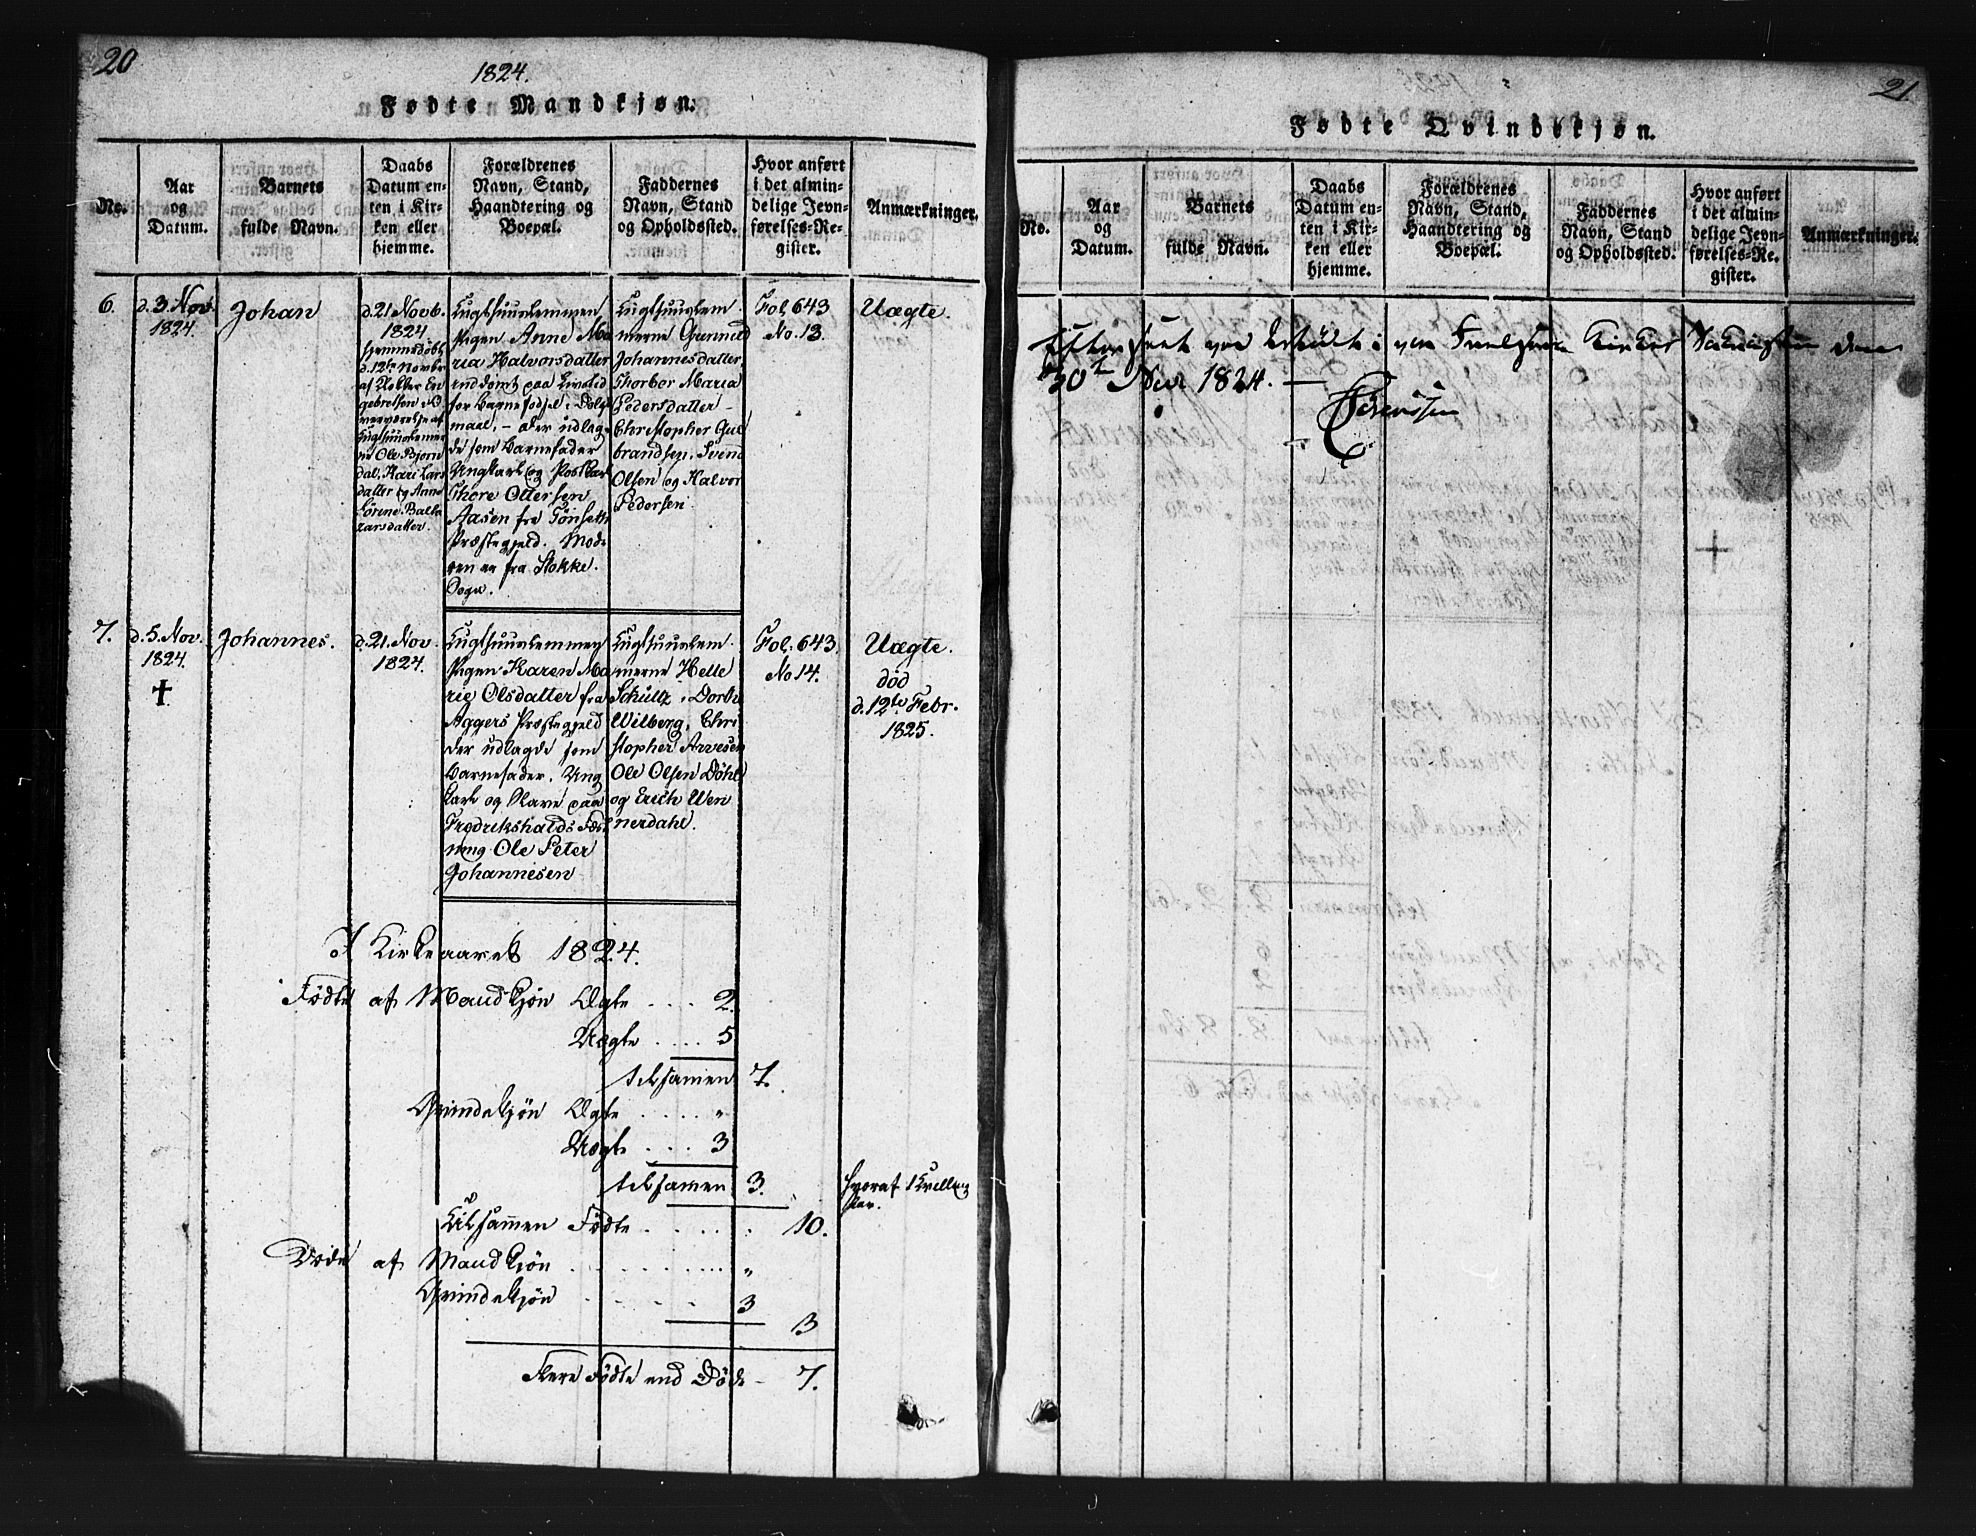 20
1824.
Fødte Mandkjøn.
No.
Aar
og
Datum.
Barnets
fulde Navn.
Daabs
Datum en-
ten i Kir-
ken eller
hjemme.
Forældrenes
Navn, Stand,
Haandtering og
Boepæl.
Faddernes
Navn, Stand
og Opholdssted.
Hvor anført
i det almin-
delige Jevn-
førelses-Re-
gister.
Anmærkninger.
6.
d. 3. Nov.
1824.
Johan
d. 21 Novb.
1824
hjemmedøbt
d. 12te Novbr
af Slotter En
gebretsen i O
verværelse af
Tugthuuslemmer
ne Ole Bjørn
dal, Kari Lars
datter og Anne
Sörine Balta
zarsdatter.
Tugthuuslemmen
Pigen Anne Ma
ria Halvorsdatter
inddømt paa Livstid
for Barnefødsel i Dølgs
maal, - der udlag
de som Barnefader
Ungkarl og Postkarl
Thore Ottersen
Aasen fra Tönseth
Præstegjeld. Mode
ren er fra Stokke
Sogn.
Tugthuuslem
merne Gunnild
Johannesdatter,
Thorbor Maria
Pedersdatter
Christopher Gul
brandsen, Svend
Olsen og Halvor
Pedersen
Fol. 643
No. 13.
Uægte.
7.
d. 5. Nov.
1824.
Johannes.
d. 21. Nov
1824.
Tugthuuslemmen
Pigen Karen Ma
rie Olsdatter fra
Aggers Præstegjeld
der udlagde som
Barnefader, Ung
karl og Slave paa
Fredrikshalds Fæst
ning Ole Peter
Johannesen
Tugthuuslem
merne Helle
Schultz, Dorthe
Wilberg, Chri
stopher Arvesen
Ole Olsen Döhl
og Erich Wen
nerdahl.
Fol. 643.
No 14.
Uægte.
død
d. 12te Febr.
1825.
I Kirkeaaret 1824.
Födte af Mandkjön Ægte .... 2.
Uægte .... 5
tilsamen 7.
Qvindekjön Ægte ..... "
Uægte .... 3
tilsamen 3.
hvoraf 1 Tvilling
par.
Tilsammen Födte ...... 10.
Döde af Mandkjön ........ "
Qvindekjön ..... 3
3
Flere Födte end Döde - 7.
21
Fødte Qvindekjøn.
No.
Aar
og
Datum.
Barnets
fulde Navn.
Daabs
Datum en-
ten i Kir-
ken eller
hjemme.
Forældrenes
Navn, Stand,
Haandtering og
Boepæl.
Faddernes
Navn, Stand
og Opholdssted.
Hvor anført
i det almin-
delige Jevn-
førelses-Re-
gister.
Anmærkninger.
Efterseet ved i Kirkes Sakristie den
30t Nov 1824.